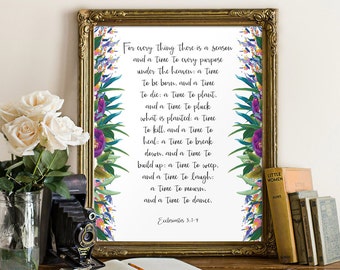 For every thing there is a season
and a time to every purpose
under the heaven: a time
to be born, and a time
to die: a time to plant,
and a time to pluck
what is planted: a time
to kill, and a time to
heal: a time to break
down, and a time to
build up: a time to weep,
and a time to laugh:
a time to mourn,
and a time to dance.
Ecclesiastes 3:1-4
LITTLE
WOMEN